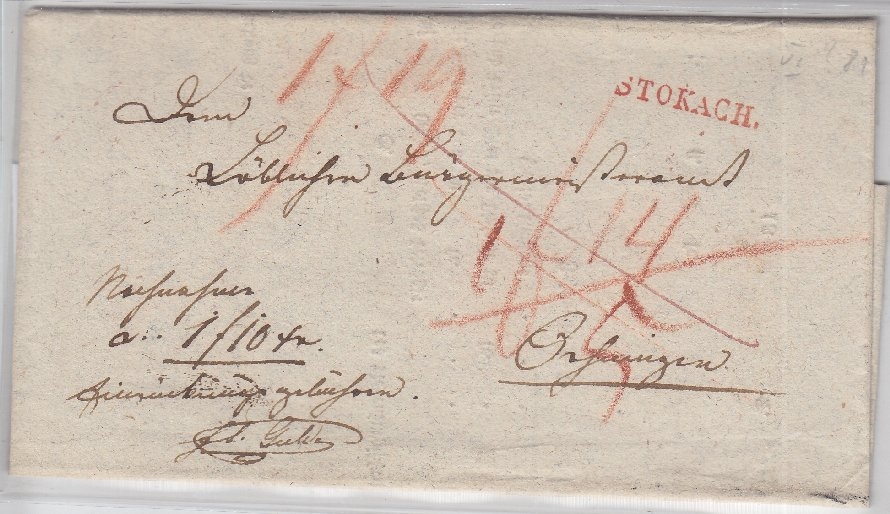 1 f 19
STOKACH.
Dem
Löblichen Bürgermeisteramt
1 f 14
Nachnahme
a.. 1 f 10 xr.
Orsingen
Einrückungsgebühren.